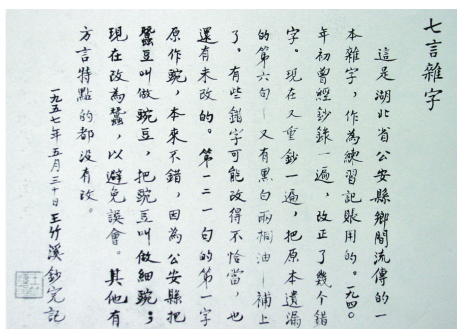 七言雜字
這是湖北省公安縣鄉間流傳的一
本雜字，作為練習記賬用的。一九四〇
年初曾經鈔錄一遍，改正了幾個錯
字。現在又重鈔一遍，把原本遺漏
的第六句—又有黑白兩桐油—補上
了。有些錯字可能改得不恰當，也
還有未改的。第一二一句的第一字
原作豌，本來不錯，因為公安縣把
蠶豆叫做豌豆，把豌豆叫做細豌；
現在改為蠶，以避免誤會。其他有
方言特點的都沒有改。
一九五七年五月三十日王竹溪鈔完記